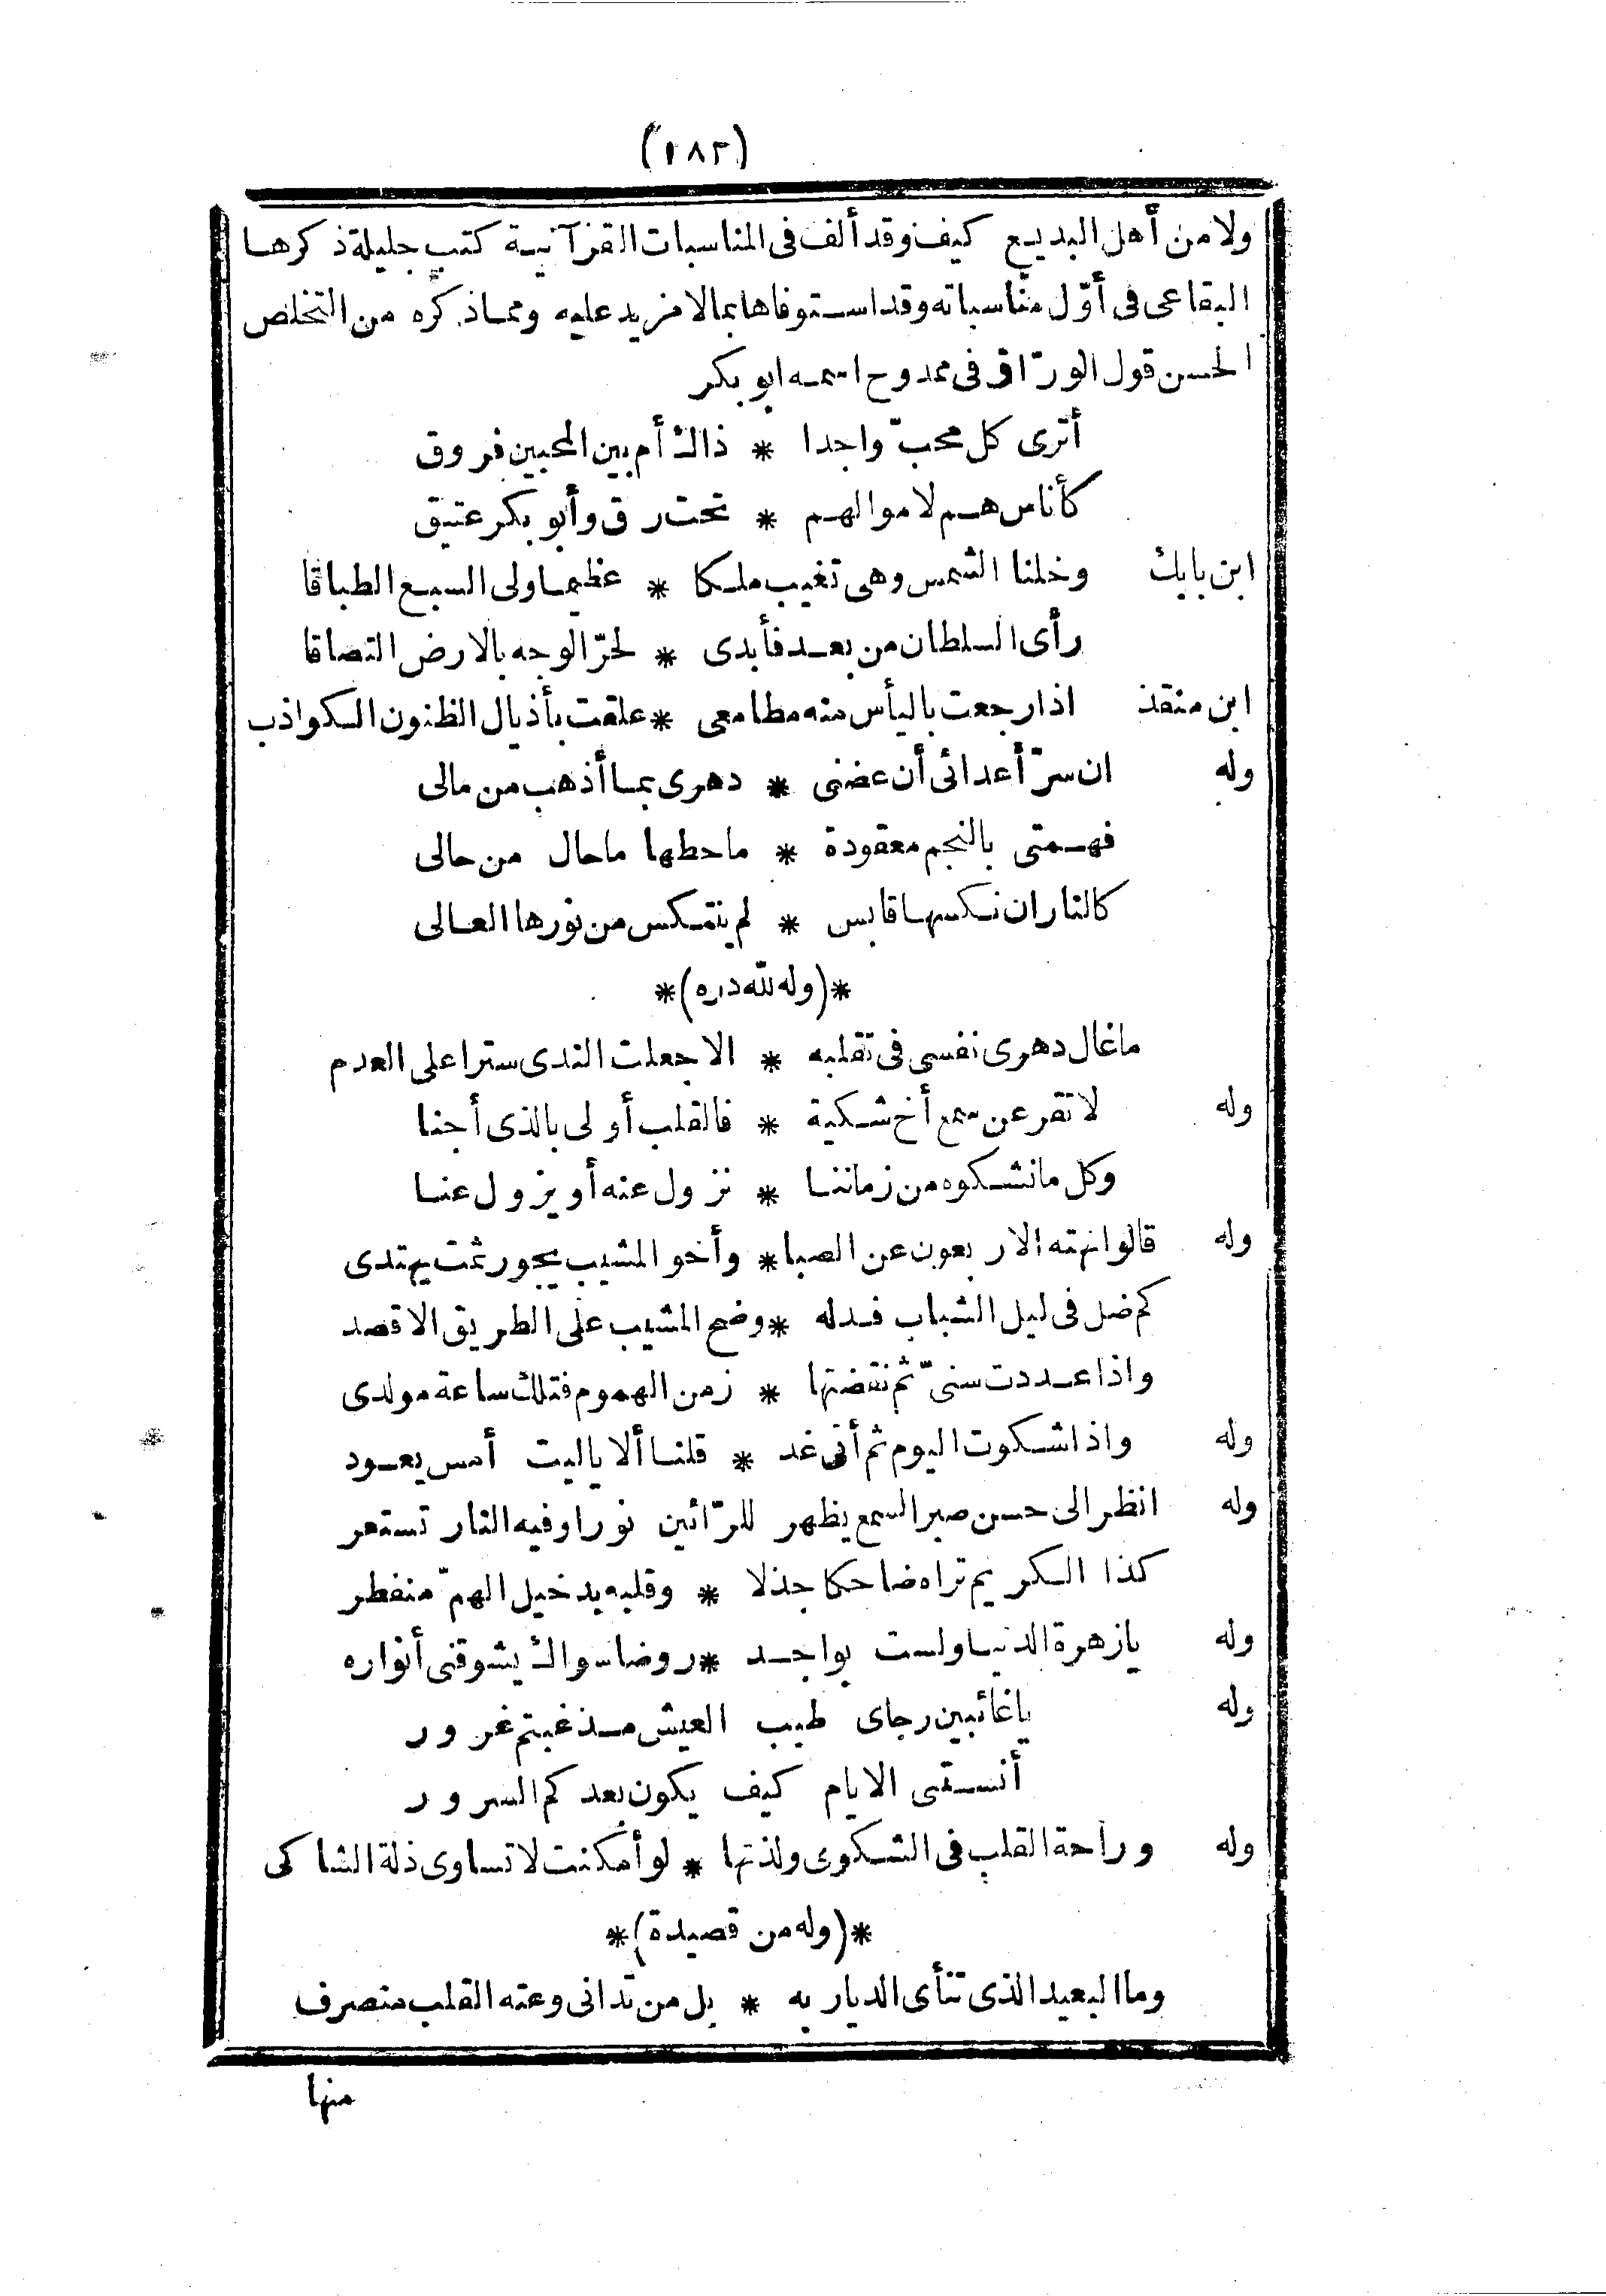 (١٨٢)
ولا من أهل البديع كيف وقد ألف فى المناسبات القرآنية كتب جليلة ذكرها
البقاعى فى أوّل مناسباته وقد استوفاها بما لا مزيد عليه ومماذكره من التخلص
الحسن قول الورّاق فى ممدوح اسمه ابو بكر
أترى كل محبّ واجدا * ذاك أم بين المحبين فروق
كأناس هم لاموالهم * تحت رق وأبو بكر عتيق
ابن بابك وخلنا الشمس وهى تغيب ملكا * عظيما ولى السبع الطباقا
رأى السلطان من بعد فأبدى * لحرّ الوجه بالارض التصاقا
ابن منقذ اذا رجعت باليأس منه مطامعى * علقت بأذيال الظنون الكواذب
وله ان سرّ أعدائى أن عضنى * دهرى بما أذهب من مالى
فهمتى بالنجم معقودة * ماحطها ماحال من حالى
كالنار ان نكسها قابس * لم ينتكس من نورها العالى
*(وله لله دره)*
ماغال دهرى نفسى فى تقلبه * الا جعلت الندى سترا على العدم
وله لا تقر عن سمع أخ شكية * فالقلب أولى بالذى أجنا
وكل مانشكوه من زماننا * نزول عنه أو يزول عنا
وله قالوا نهته الاربعون عن الصبا * وأخو المشيب يجور ثمت يهتدى
كم ضل فى ليل الشباب فدله * وضح المشيب على الطريق الاقصد
واذا عددت سنىّ ثم نقضتها * زمن الهموم فتلك ساعة مولدى
وله واذا شكوت اليوم ثم أتى غد * قلنا ألا ياليت أمس يعود
وله انظر الى حسن صبر السمع يظهر للرّائين نورا وفيه النار تستعر
كذا الكريم تراه ضاحكا جذلا * وقلبه بدخيل الهمّ منفطر
وله يازهرة الدنيا ولست بواجد * روضا سواك يشوقنى أنواره
وله ياغائبين رجاى طيب العيش مذ غبتم غرور
أنستنى الايام كيف يكون بعدكم السرور
وله وراحة القلب فى الشكوى ولذتها * لو أمكنت لا تساوى ذلة الشاكى
*(وله من قصيدة)*
وما البعيد الذى تنأى الديار به * بل من تدانى وعنه القلب منصرف
منها